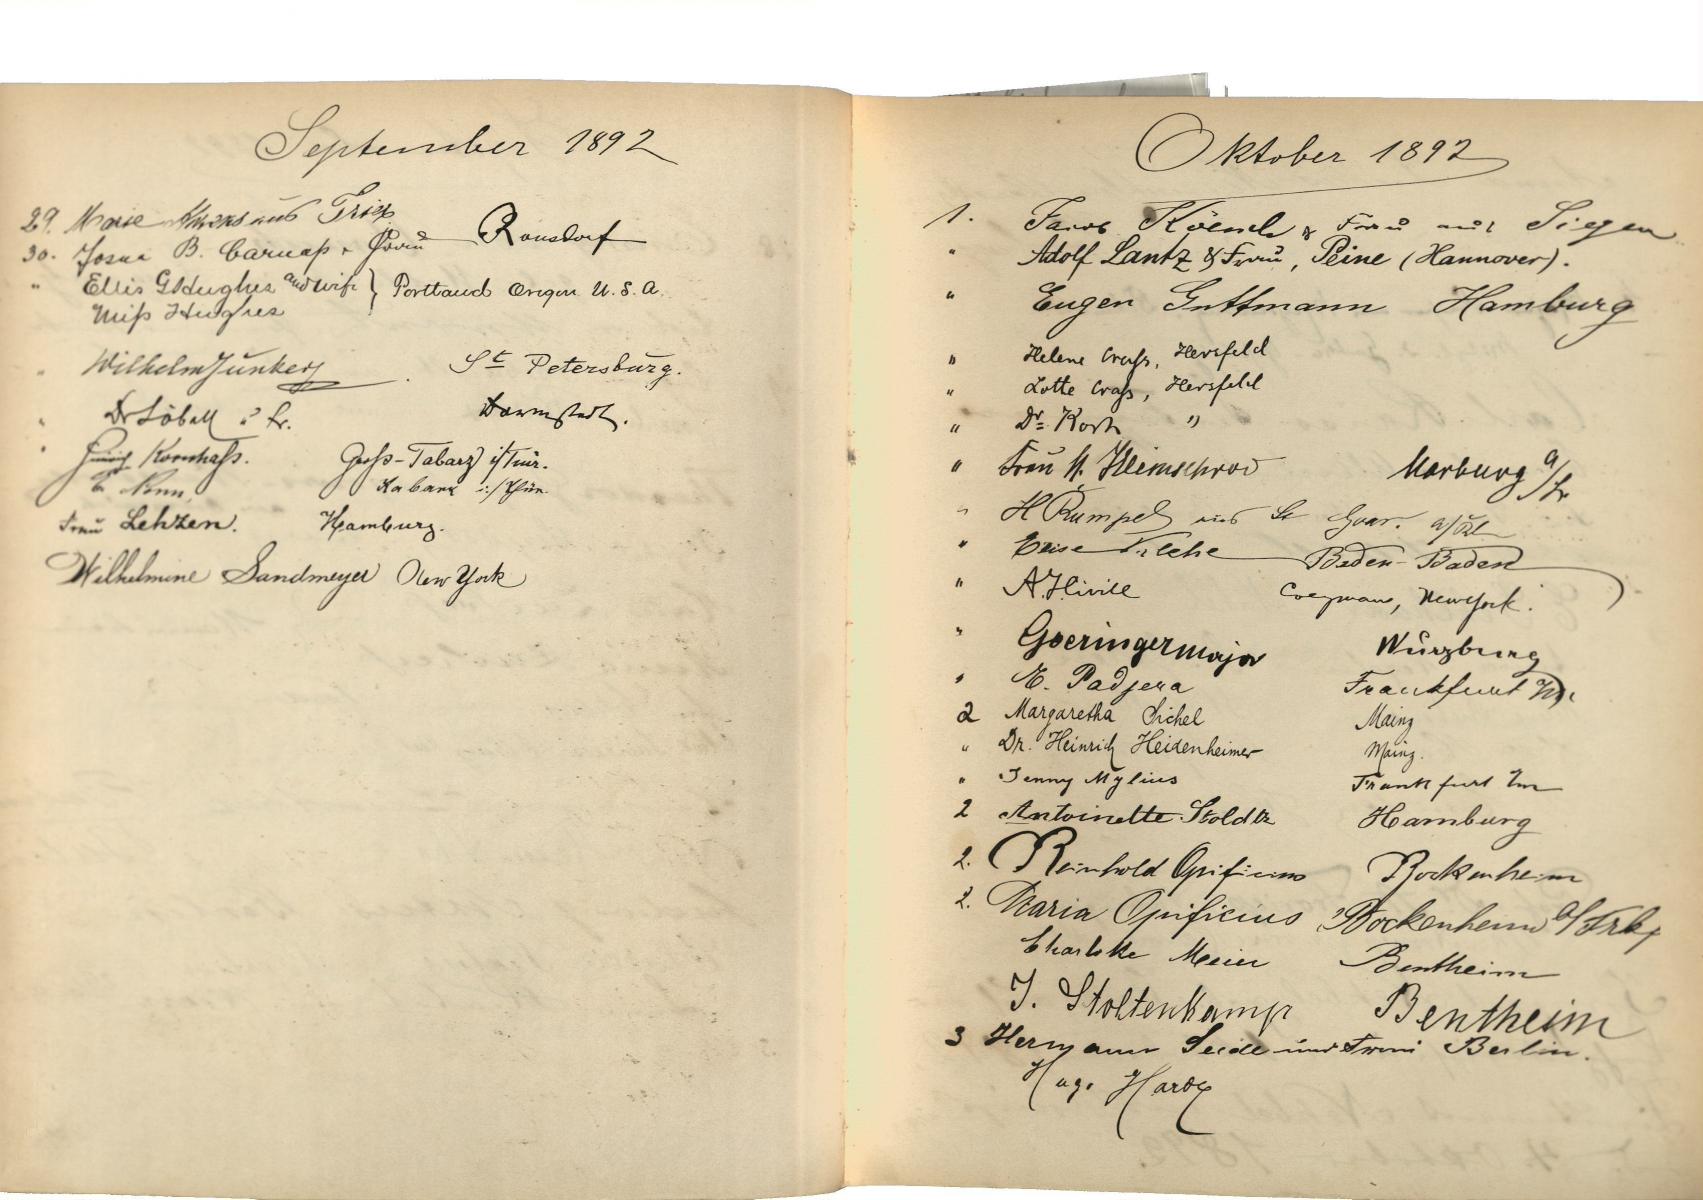 September 1892
29. Marie aus Trier
30. Josua B. Carnap + Frau Ronsdorf
" Ellis G Hughes and wife } Portland Oregon U. S. A.
Miss Hughes
" Wilhelm Junker St Petersburg.
" Dr Löbell Darmstadt.
" Kornhass. Gross-Tabarz i/Tür.
Kabarz i/Thür.
Frau Lehzen. Hamburg.
Wilhelmine Sandmeyer New York
Oktober 1892
1. Jacob & Frau aus Siegen
" Adolf Lantz & Frau, Peine (Hannover).
" Eugen Guttmann Hamburg
" Helene Crass, Hersfeld
" Lotte Crass, Hersfeld
" Dr. Korth "
" Frau Marburg a/L
" H Rumpel aus St Goar. a/Rh
" Elise Baden-Baden
" A. New York.
" Goeringer Major Würzburg
" E. Padjera Frankfurt
2 Margaretha Sichel Mainz
" Dr. Heinrich Heidenheimer Mainz.
" Jenny Mylius Frankfurt
2 Antoinette Hamburg
2. Reinhold Opificius Bockenheim
2. Maria Opificius Bockenheim
Charlotte Meier Bentheim
J. Stoltenkamp Bentheim
3 Hermann Seide und Frau Berlin.
Hugo